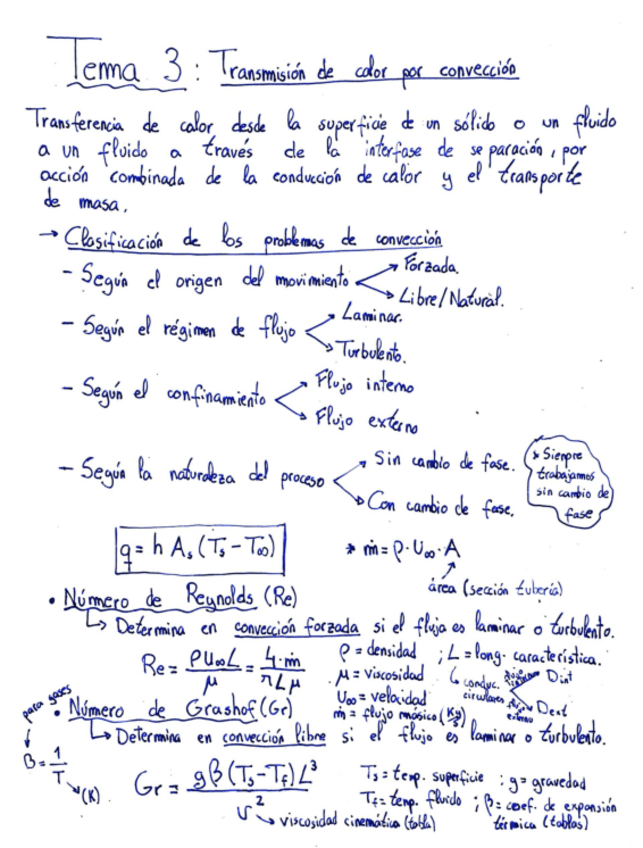 Tema 3: Transmisión de calor por convección
Transferencia de calor desde la superficie de un sólido o un fluido
a un fluido a través de la interfase de separación, por
acción combinada de la conducción de calor y el transporte
de masa.
→ Clasificación de los problemas de convección
- Según el origen del movimiento
Forzada.
Libre/Natural.
- Según el régimen de flujo
Laminar.
Turbulento.
- Según el confinamiento
Flujo interno
Flujo externo
- Según la naturaleza del proceso
Sin cambio de fase.
Con cambio de fase.
* Sienpre
trabajamos
sin cambio de
fase
q = h A_s (T_s - T_∞)
* ṁ = ρ · U_∞ · A
área (sección tubería)
• Número de Reynolds (Re)
↳ Determina en convección forzada si el fluja es laminar o turbulento.
Re = ρ U_∞ L / μ = 4 · ṁ / π L μ
ρ = densidad ; L = long. característica.
μ = viscosidad
↳ conduc. circulares
Dint
flujo externo
Dext
U_∞ = velocidad
ṁ = flujo másico (Kg/s)
• Número de Grashof (Gr)
↳ Determina en convección libre si el flujo es laminar o turbulento.
para gases
β = 1 / T
(K)
Gr = g β (T_s - T_f) L³ / ν²
viscosidad cinemática (tabla)
T_s = temp. superficie ; g = gravedad
T_f = temp. fluido ; β = coef. de expansión
térmica (tablas)